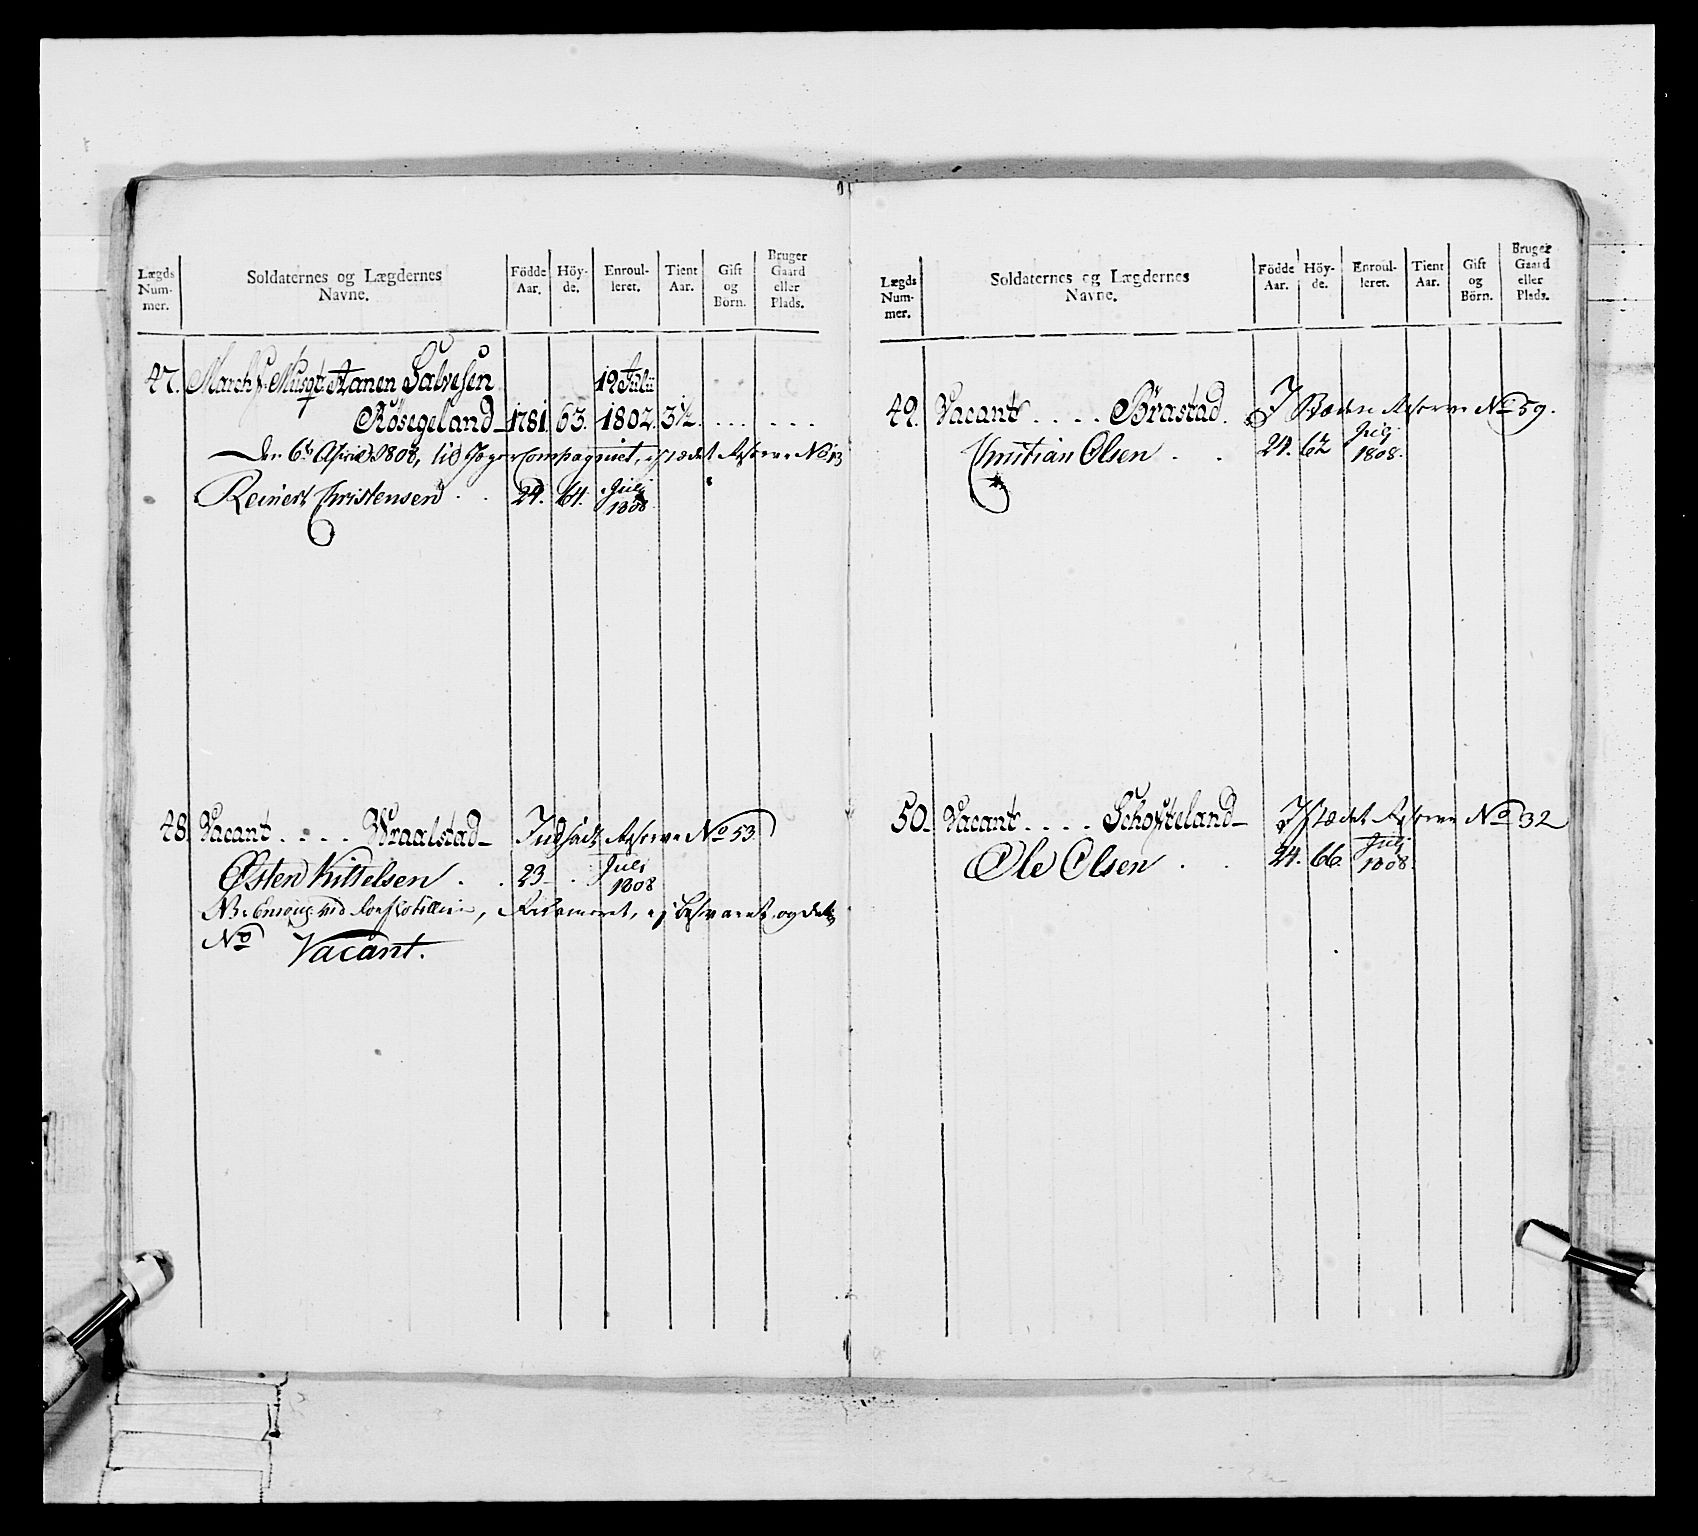 Lægds Num- mer.
Soldaternes og Lægdernes Navne.
Födde Aar.
Höy- de.
Enroul- leret.
Tient Aar.
Gift og Börn.
Bruger Gaard eller Plads.
47. March: Musqt Aanen Salvesen 19 Julii
Röségeland 1781. 63. 1802. 3½. . . . . . .
Den 6te April 1808, til Jæger Compagniet, istædet Reserve No 13
Reinert Christensen . . 24. 64. Julj 1808.
48. Vacant . . . . Wraalstad Indsadt Reserve No 53
Østen Kittelsen . . 23 . Julj 1808
NB: Enroug: ved
No Vacant.
Lægds Num- mer.
Soldaternes og Lægdernes Navne.
Födde Aar.
Höy- de.
Enroul- leret.
Tient Aar.
Gift og Börn.
Bruger Gaard eller Plads.
49. Vacant . . . . Brastad. I Reserve No 59.
Christian Olsen . . 24. 62 Julj 1808.
50. Vacant . . . . Schoxteland Istædet Reserve No 32
Ole Olsen . . 24. 66. Julj 1808.